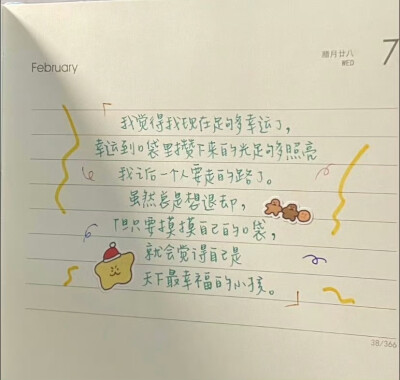 腊月廿八
7
February
「
我觉得我现在足够幸运了，
幸运到口袋里攒下来的光足够照亮
我之后一个人要走的路了。
虽然总是想退却，
但只要摸摸自己的口袋，
就会觉得自己是
天下最幸福的小孩。
」
38/366